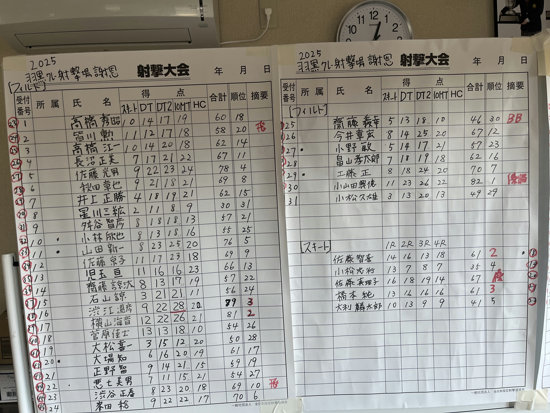 2025
羽黒クレー射撃場謝恩 射撃大会 年 月 日
[フィールド]
受付番号 所属 氏名 得点 合計 順位 摘要
スキート DT DT2 10MT HC
1 高橋 10 14 17 19 60 18
2 皆川 勲 11 12 17 18 58 20
3 高橋 江一 10 14 20 18 62 14
4 長沼 正美 7 17 21 22 67 11
5 佐藤 光男 9 22 23 24 78 4
6 秋田 章也 9 21 18 21 69 8
7 井上 正勝 4 18 19 21 62 15
8 星川 三 2 11 8 9 30 31
9 8 18 18 13 57 21
10 小林 欣也 8 13 18 16 55 25
11 山田 新一 8 23 25 20 76 5
12 佐藤 京子 11 17 23 18 69 9
13 児玉 亘 11 16 16 23 66 13
14 齋藤 8 13 17 19 57 22
15 石山 諒 3 21 21 11 56 24
16 渋江 9 22 28 20 79 3
17 横山 海音 12 22 26 21 81 2
18 菅原 13 13 18 10 54 26
19 大松 喜一 3 15 12 20 50 28
20 大場 知 6 16 20 19 61 17
21 正野 賢 9 14 17 19 59 19
22 男 7 11 15 21 54 27
23 渋谷 正 8 23 20 18 69 10
24 峯田 稔 9 22 22 17 70 6
2025
羽黒クレー射撃場謝恩 射撃大会 年 月 日
[フィールド]
受付番号 所属 氏名 得点 合計 順位 摘要
スキート DT DT2 10MT HC
25 齋藤 義幸 5 13 18 10 46 30 BB
26 今井 章宏 8 14 25 20 67 12
27 小野 敏 5 17 18 17 57 23
28 畠山 孝太郎 7 13 20 22 62 16
29 工藤 正 8 18 24 20 70 7
30 小山田 興徳 11 23 26 22 82 1 優勝
31 小松 久雄 3 13 20 13 49 29
[スキート] 1R 2R 3R 4R
佐藤 智喜 14 16 13 18 61 2
小松 忠将 13 7 8 7 35 4
佐藤 真理子 16 18 19 14 67 優
橋本 純 13 16 16 16 61 3
大利 麟太郎 10 13 9 9 41 5